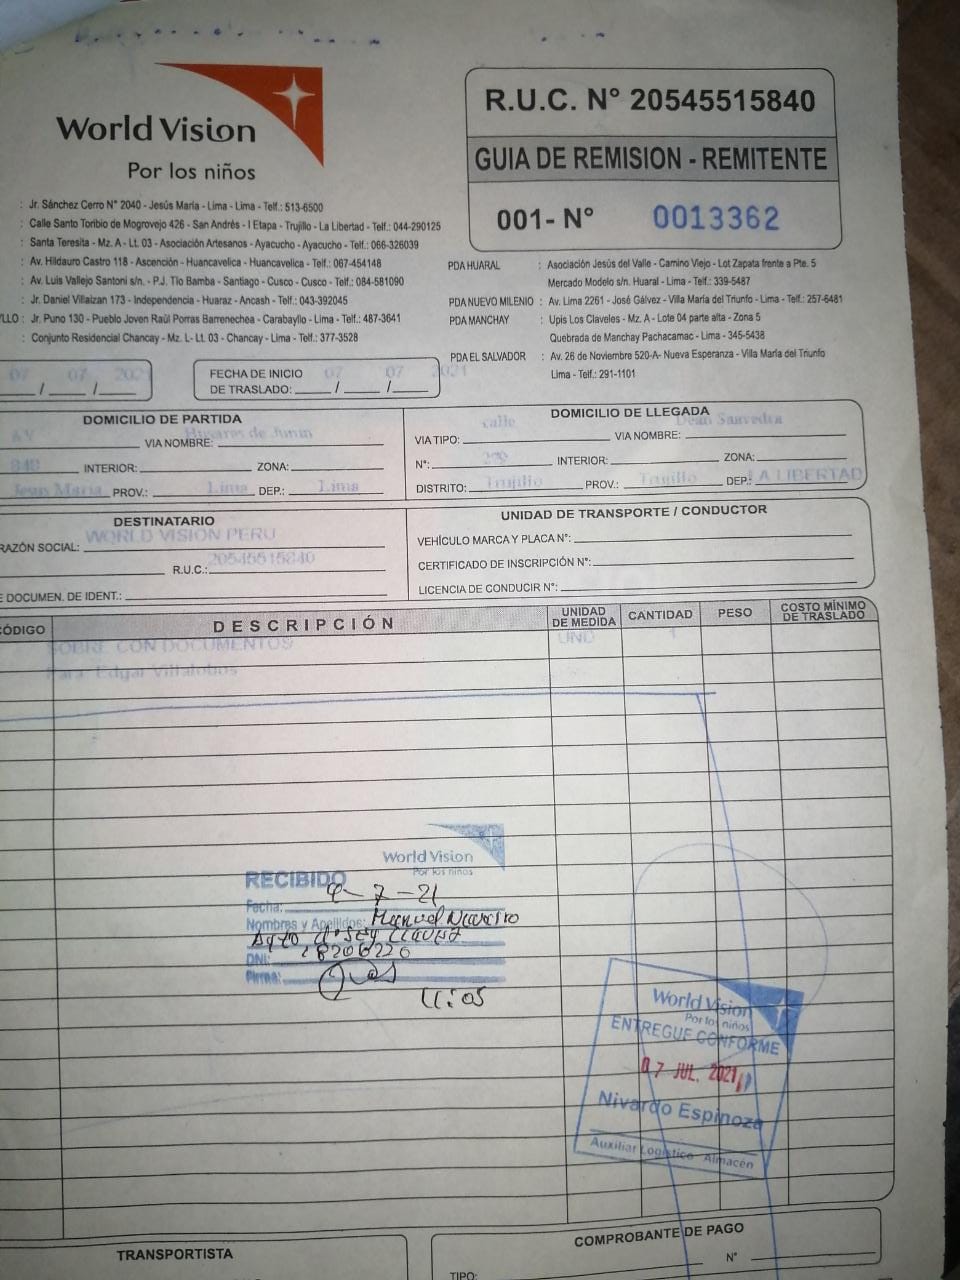 World Vision
Por los niños
R.U.C. N° 20545515840
GUIA DE REMISION - REMITENTE
001- N° 0013362
: Jr. Sánchez Cerro N° 2040 - Jesús María - Lima - Lima - Telf.: 513-6500
: Calle Santo Toribio de Mogrovejo 426 - San Andrés - I Etapa - Trujillo - La Libertad - Telf.: 044-290125
: Santa Teresita - Mz. A - Lt. 03 - Asociación Artesanos - Ayacucho - Ayacucho - Telf.: 066-326039
: Av. Hildauro Castro 118 - Ascención - Huancavelica - Huancavelica - Telf.: 067-454148
: Av. Luis Vallejo Santoni s/n. - P.J. Tío Bamba - Santiago - Cusco - Cusco - Telf.: 084-581090
: Jr. Daniel Villaizan 173 - Independencia - Huaraz - Ancash - Telf.: 043-392045
YLLO : Jr. Puno 130 - Pueblo Joven Raúl Porras Barrenechea - Carabayllo - Lima - Telf.: 487-3641
: Conjunto Residencial Chancay - Mz. L- Lt. 03 - Chancay - Lima - Telf.: 377-3528
PDA HUARAL : Asociación Jesús del Valle - Camino Viejo - Lot Zapata frente a Pte. 5
Mercado Modelo s/n. Huaral - Lima - Telf.: 339-5487
PDA NUEVO MILENIO : Av. Lima 2261 - José Gálvez - Villa María del Triunfo - Lima - Telf.: 257-6481
PDA MANCHAY : Upis Los Claveles - Mz. A - Lote 04 parte alta - Zona 5
Quebrada de Manchay Pachacamac - Lima - 345-5438
PDA EL SALVADOR : Av. 26 de Noviembre 520-A- Nueva Esperanza - Villa María del Triunfo
Lima - Telf.: 291-1101
07 / 07 / 2021
FECHA DE INICIO
DE TRASLADO: 07 / 07 / 2021
DOMICILIO DE PARTIDA
AV VIA NOMBRE: Húsares de Junín
840 INTERIOR: ZONA:
Jesus Maria PROV.: Lima DEP.: Lima
DOMICILIO DE LLEGADA
VIA TIPO: calle VIA NOMBRE: Dean Saavedra
N°: INTERIOR: ZONA:
DISTRITO: Trujillo PROV.: Trujillo DEP.: LA LIBERTAD
DESTINATARIO
RAZÓN SOCIAL: WORLD VISION PERU
R.U.C.: 20545515840
E DOCUMEN. DE IDENT.:
UNIDAD DE TRANSPORTE / CONDUCTOR
VEHÍCULO MARCA Y PLACA N°:
CERTIFICADO DE INSCRIPCIÓN N°:
LICENCIA DE CONDUCIR N°:
CÓDIGO DESCRIPCIÓN UNIDAD DE MEDIDA CANTIDAD PESO COSTO MÍNIMO DE TRASLADO
SOBRE CON DOCUMENTOS UND 1
Para: Edgar Villalobos
World Vision
Por los niños
RECIBIDO
Fecha: 9-7-21
Nombres y Apellidos: Manuel Navarro
DNI: 18206220
Firma:
11:05
World Vision
Por los niños
ENTREGUE CONFORME
07 JUL. 2021
Nivardo Espinoza
Auxiliar Logístico - Almacén
TRANSPORTISTA
COMPROBANTE DE PAGO
TIPO: N°